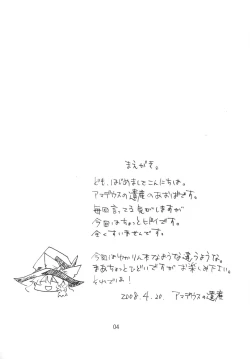 まえがき。
ども、はじめましてこんにちは。
アマデウスの遺産のあおばです。
毎回言ってる気がしますが
今回はちょっとヒドイです。
全くすいませんです。
今回はゆかりん本なような違うような。
まあちょっとひどいですが お楽しみ下さい。
それでは!
2008.4.20. アマデウスの遺産
04